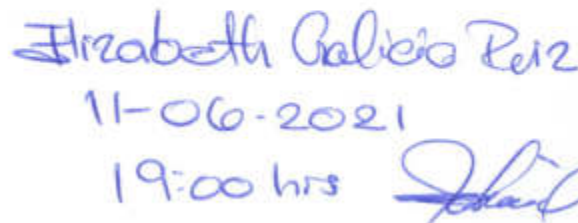 Elizabeth Galicia Ruiz
11-06-2021
19:00 hrs